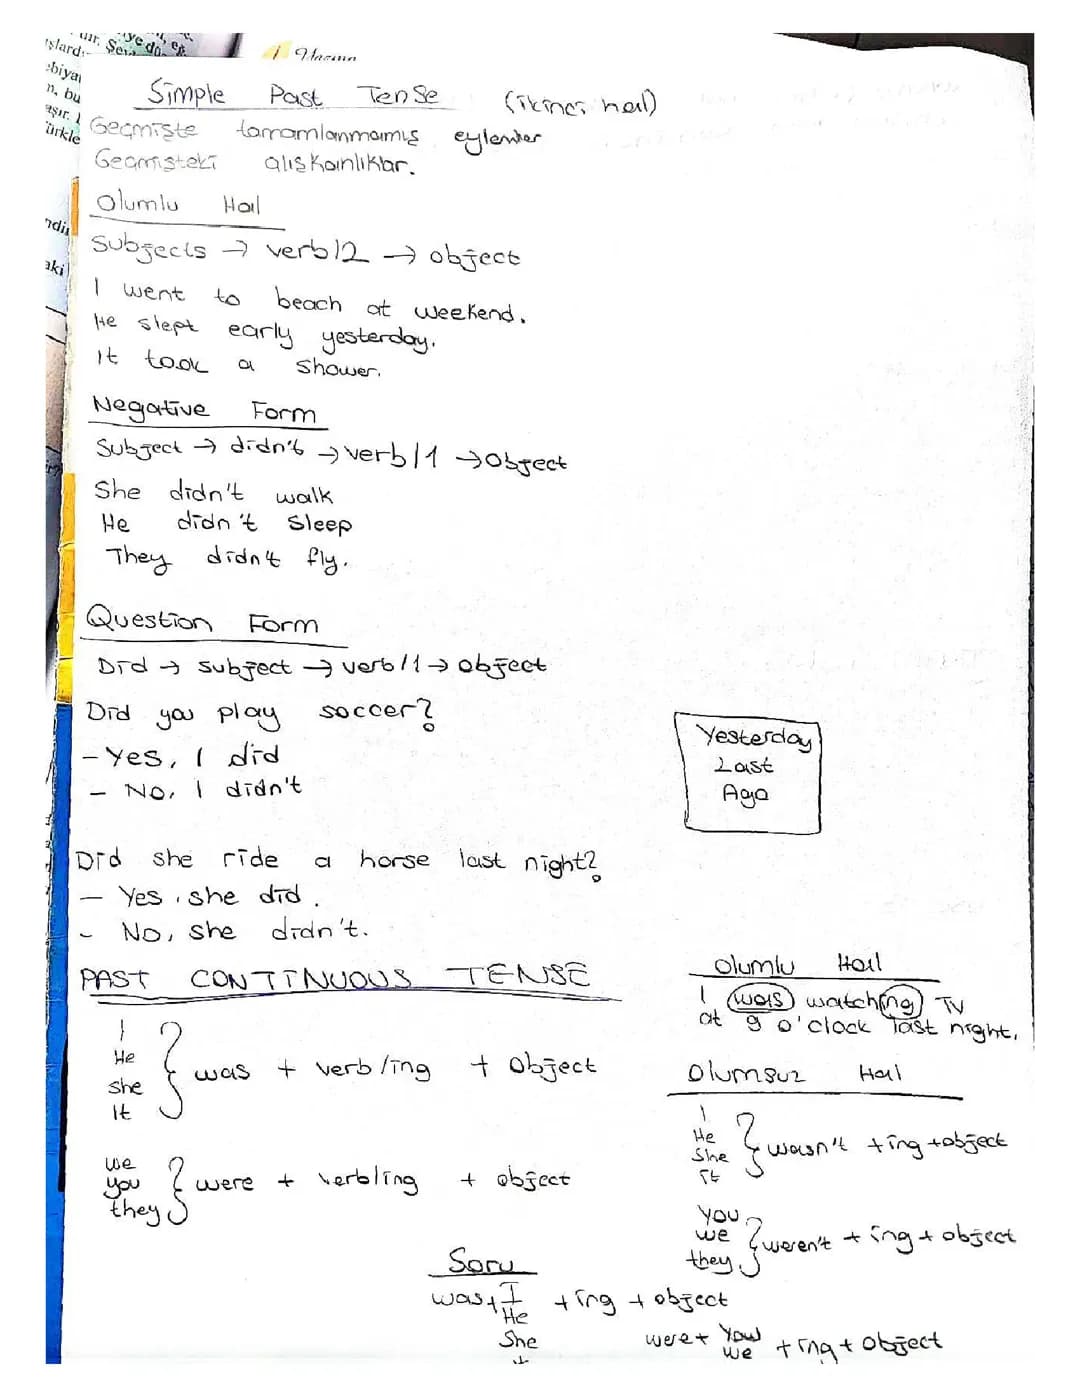 Simple Past Tense (ikinci hal)
Geçmişte tamamlanmamış eylemler
Geçmişteki alışkanlıklar.
Olumlu Hal
Subjects → verb/2 → object
I went to beach at weekend.
He slept early yesterday.
It took a shower.
Negative Form
Subject → didn't → verb/1 → object
She didn't walk
He didn't sleep
They didn't fly.
Question Form
Did → subject → verb/1 → object
Did you play soccer?
- Yes, I did
- No, I didn't
Yesterday
Last
Ago
Did she ride a horse last night?
- Yes, she did.
- No, she didn't.
PAST CONTINUOUS TENSE
I
He
she
It
was + verb/ing + object
we
you
they
were + verb/ing + object
Olumlu Hal
I was watching TV
at 9 o'clock last night.
Olumsuz Hal
I
He
She
It
wasn't + ing + object
you
we
they
weren't + ing + object
Soru
was + I + ing + object
He
She
were + you + ing + object
we